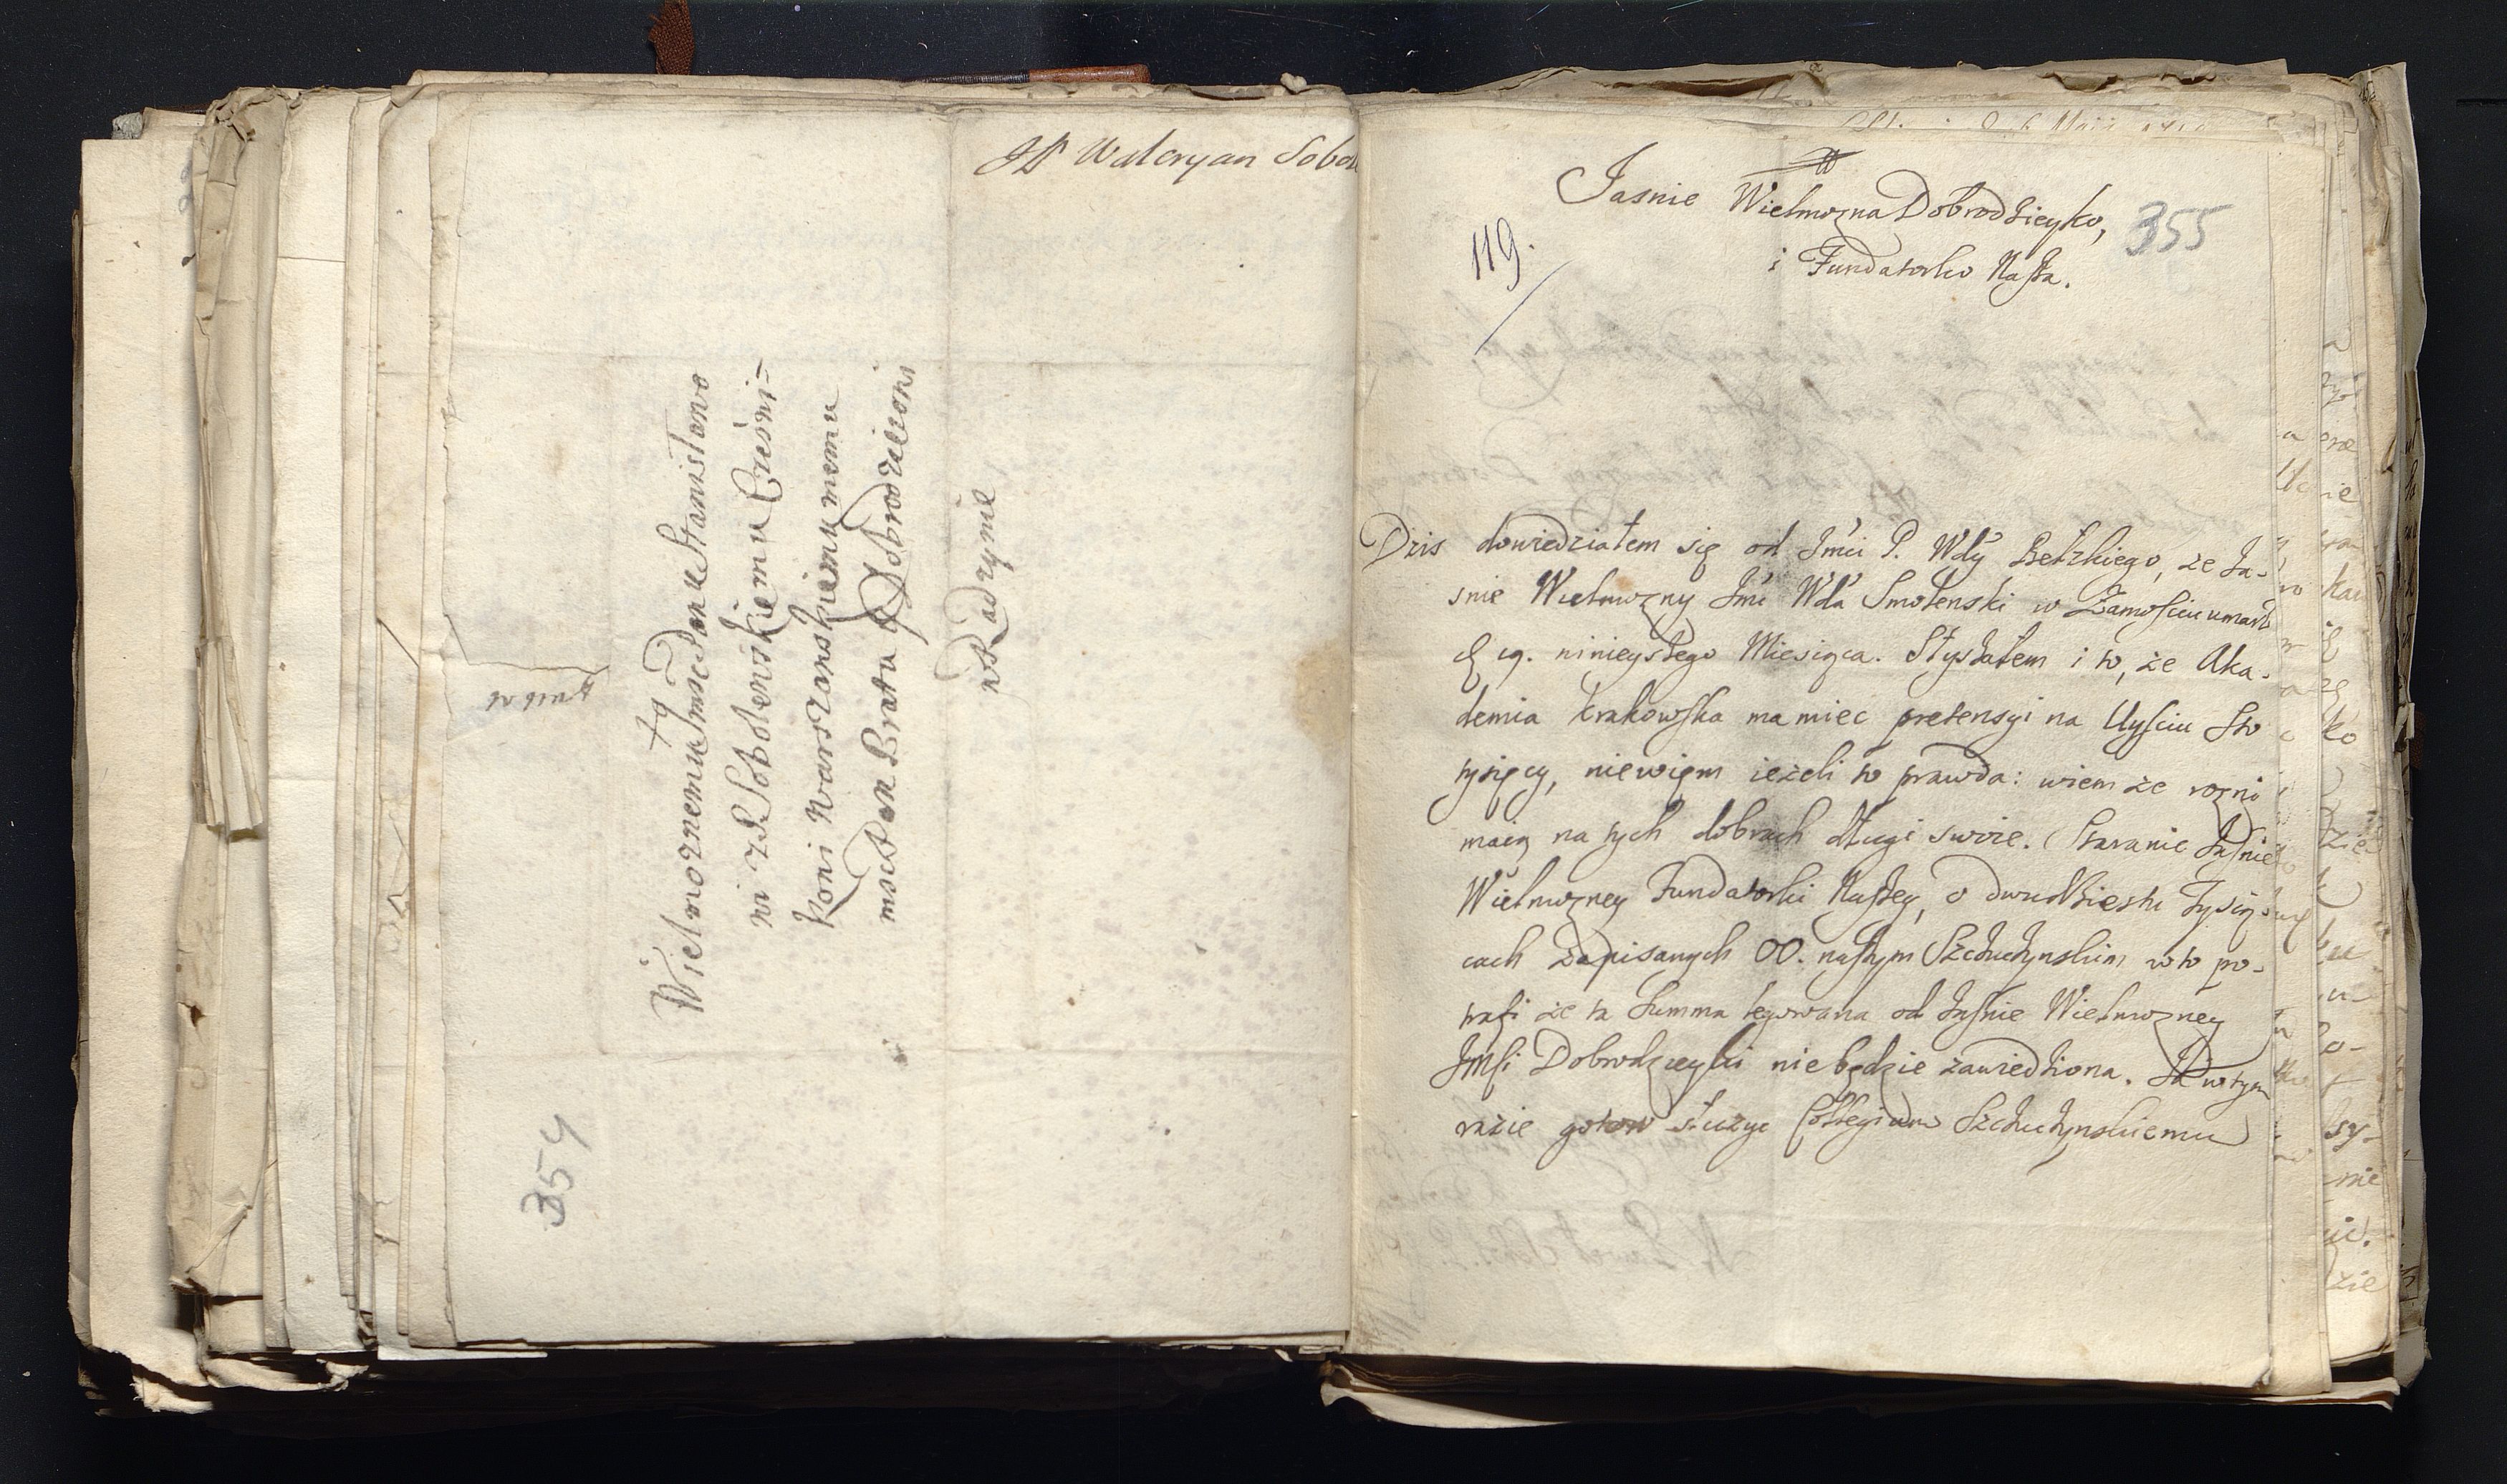 JP Waleryan Sobol
Wielmoznemu Jmsc Panu Stanisławo
wi z Sobolewskiemu Czesni-
kowi Warszawskiemu memu
msci Panu Bratu y Dobrodzieiowi
w Radzyminie
354
119.
355
Jasnie Wielmozna Dobrodzieyko,
i Fundatorko Nasza.
Dzis dowiedziałem się od Jmci P. Wdy Bełzkiego, ze Ja-
snie Wielmozny Jmć Wda Smolenski w Zamościu umarł
d 19. ninieyszego Miesiąca. Słyszałem i to, że Aka-
demia Krakowska ma miec pretensyi na Uyściu Sto
tysięcy, niewięm ieżeli to prawda: wiem ze rozni
maią na tych dobrach długi swoie. Staranie Jaśnie
Wielmozney Fundatorki Naszey, o dwudziestu Tysią-
cach zapisanych OO. naszym Szczuczynskim w to po-
trafi że ta Summa legowana od Jaśnie Wielmozney
JMści Dobrodzieyki nie będzie zawiedziona. Ja w tym
razie gotow służyc Collegium Szczuczynskiemu